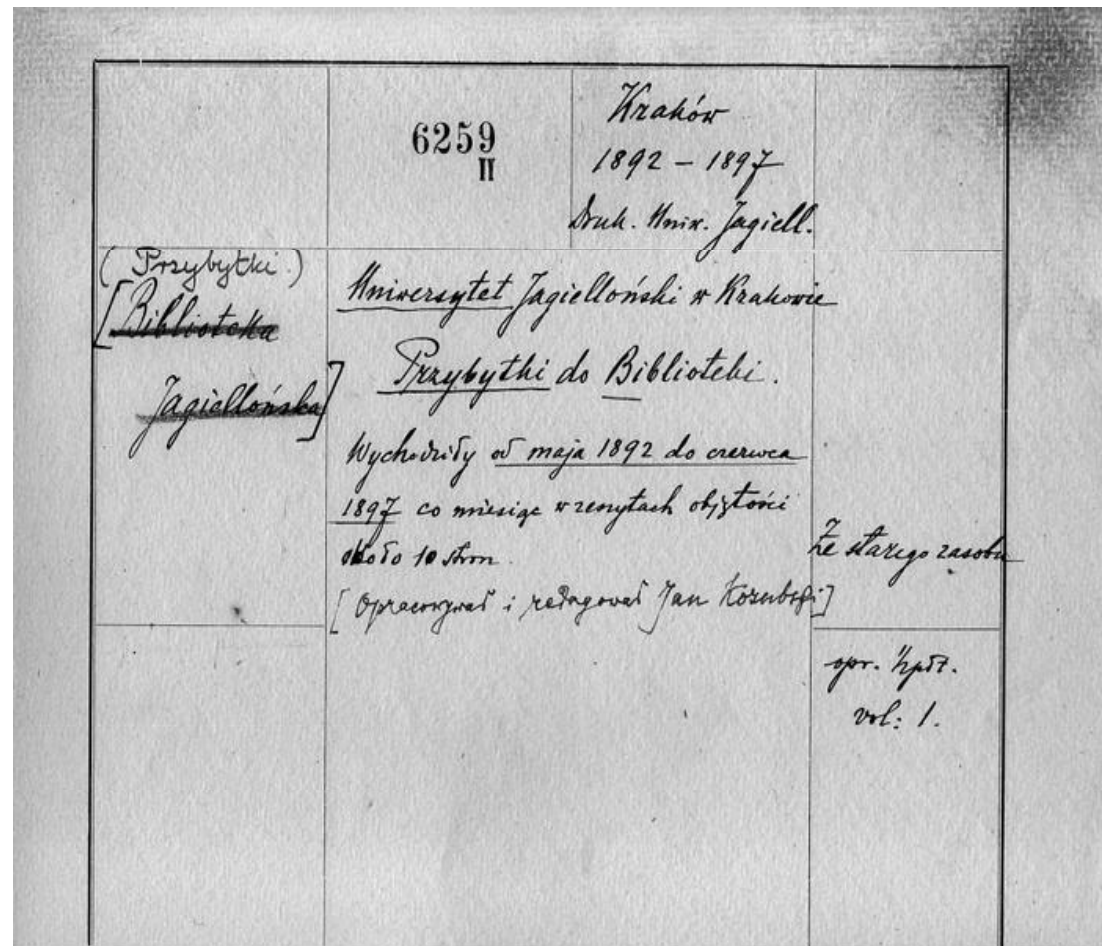 6259
II
Kraków
1892 – 1897
Druk. Uniw. Jagiell.
(Przybytki.)
[Biblioteka
Jagiellońska]
Uniwersytet Jagielloński w Krakowie
Przybytki do Biblioteki.
Wychodziły od maja 1892 do czerwca
1897 co miesiąc w zeszytach objętości
około 10 stron.
[Opracowywał i redagował Jan Kozubski]
Ze starego zasobu
opr. ½ płt.
vol: 1.